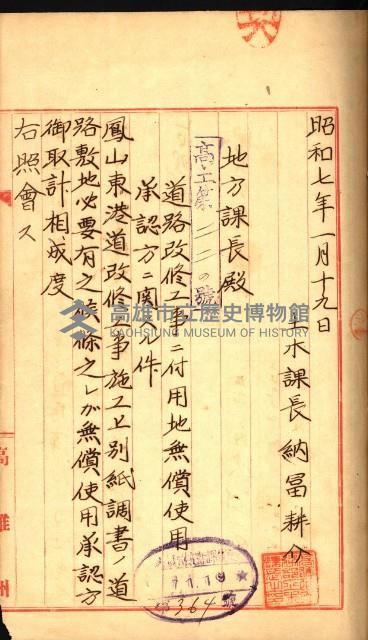 昭和七年一月十九日
木課長 納冨耕介
地方課長殿
高工第二二の號
道路改修工事ニ付用地無償使用
承認方ニ関スル件
鳳山東港道改修工事施工上別紙調書ノ道
路敷地必要有之候條之レガ無償使用承認方
御取計相成度
右照會ス
高雄州
11.19
364
高雄市立歷史博物館
KAOHSIUNG MUSEUM OF HISTORY